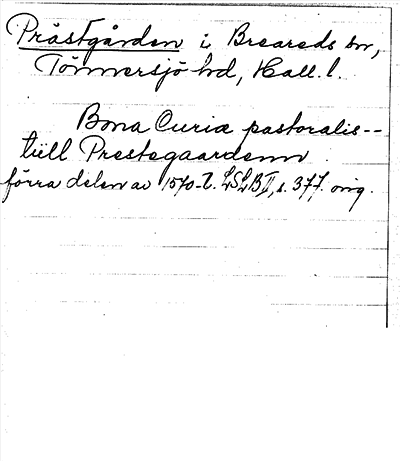 Prästgården i Breareds sn,
Tönnersjö hd, Hall. l.
Bona Curiæ pastoralis--
till Prestegaardenn
förra delen av 1570-t. LSLB II, s. 377. orig.